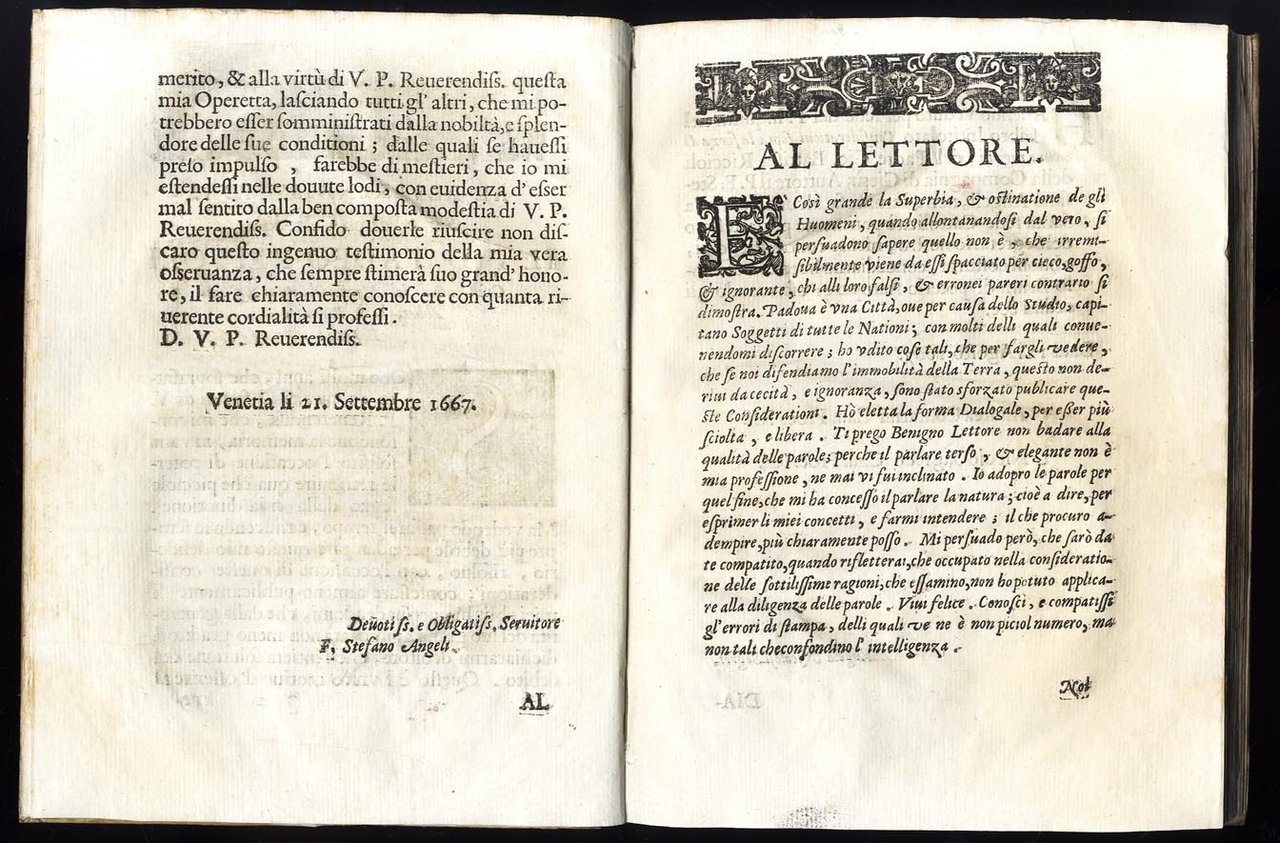 merito, & alla virtù di V. P. Reuerendiſs. queſta
mia Operetta, laſciando tutti gl' altri, che mi po-
trebbero eſſer ſomminiſtrati dalla nobiltà, e ſplen-
dore delle ſue conditioni ; dalle quali ſe haueſſi
preſo impulſo , farebbe di meſtieri, che io mi
eſtendeſſi nelle douute lodi, con euidenza d' eſſer
mal ſentito dalla ben compoſta modeſtia di V. P.
Reuerendiſs. Confido douerle riuſcire non diſ-
caro queſto ingenuo teſtimonio della mia vera
oſſeruanza, che ſempre ſtimerà ſuo grand' hono-
re, il fare chiaramente conoſcere con quanta ri-
uerente cordialità ſi profeſſi .
D. V. P. Reuerendiſs.
Venetia li 21. Settembre 1667.
Deuotiſs. e Obligatiſs. Seruitore
F. Stefano Angeli.
AL
AL LETTORE.
E' Così grande la Superbia, & oſtinatione de gli
Huomeni, quando allontanandoſi dal vero, ſi
perſuadono ſapere quello non è , che irremiſ-
ſibilmente viene da eſſi ſpacciato per cieco, goffo,
& ignorante, chi alli loro falſi, & erronei pareri contrario ſi
dimoſtra. Padoua è vna Città, oue per cauſa dello Studio, capi-
tano Soggetti di tutte le Nationi ; con molti delli quali conue-
nendomi diſcorrere ; ho vdito coſe tali, che per fargli vedere,
che ſe noi difendiamo l' immobilità della Terra, queſto non de-
riui da cecità, e ignoranza, ſono ſtato sforzato publicare que-
ſte Conſiderationi. Hò eletta la forma Dialogale, per eſſer più
ſciolta , e libera . Ti prego Benigno Lettore non badare alla
qualità delle parole; perche il parlare terſo , & elegante non è
mia profeſſione, ne mai vi fui inclinato . Io adopro le parole per
quel fine, che mi ha conceſſo il parlare la natura ; cioè a dire, per
eſprimer li miei concetti , e farmi intendere ; il che procuro a-
dempire, più chiaramente poſſo . Mi perſuado però, che ſarò da
te compatito, quando rifletterai, che occupato nella conſideratio-
ne delle ſottiliſſime ragioni, che eſſamino, non ho potuto applica-
re alla diligenza delle parole . Viui felice . Conoſci, e compatiſſi
gl' errori di ſtampa, delli quali ve ne è non piciol numero, ma
non tali che confondino l' intelligenza .
Noi